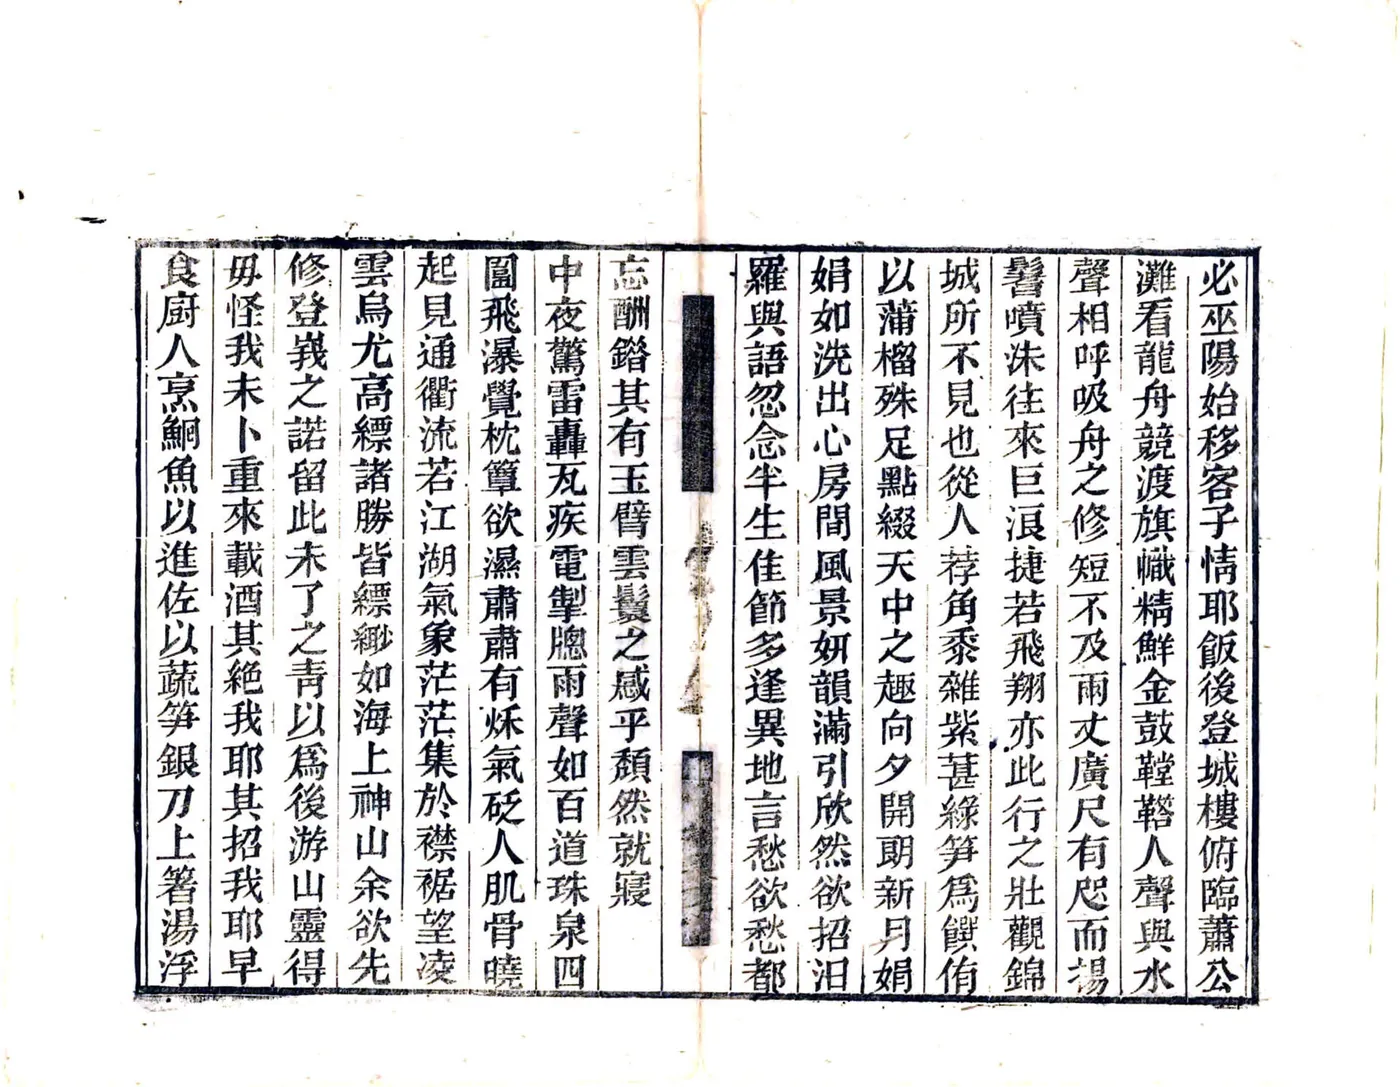 必巫陽始移客子情耶飯後登城樓俯臨蕭公
灘看龍舟競渡旗幟精鮮金鼓鞺鞳人聲與水
聲相呼吸舟之修短不及雨丈廣尺有咫而揚
鬐噴沫往來巨浪捷若飛翔亦此行之壯觀錦
城所不見也從人荐角黍雜紫葚綠笋爲饌侑
以蒲榴殊足點綴天中之趣向夕開朗新月娟
娟如洗出心房間風景妍韻滿引欣然欲招汨
羅與語忽念半生佳節多逢異地言愁欲愁都
忘酬錯其有玉臂雲鬟之感乎頹然就寢
中夜驚雷轟瓦疾電掣牕雨聲如百道珠泉四
圍飛瀑覺枕簟欲濕肅肅有秌氣砭人肌骨曉
起見通衢流若江湖氣象茫茫集於襟裾望凌
雲烏尤高縹諸勝皆縹緲如海上神山余欲先
修登峩之諾留此未了之靑以爲後游山靈得
毋怪我未卜重來載酒其絶我耶其招我耶早
食廚人烹鮰魚以進佐以蔬笋銀刀上箸湯浮